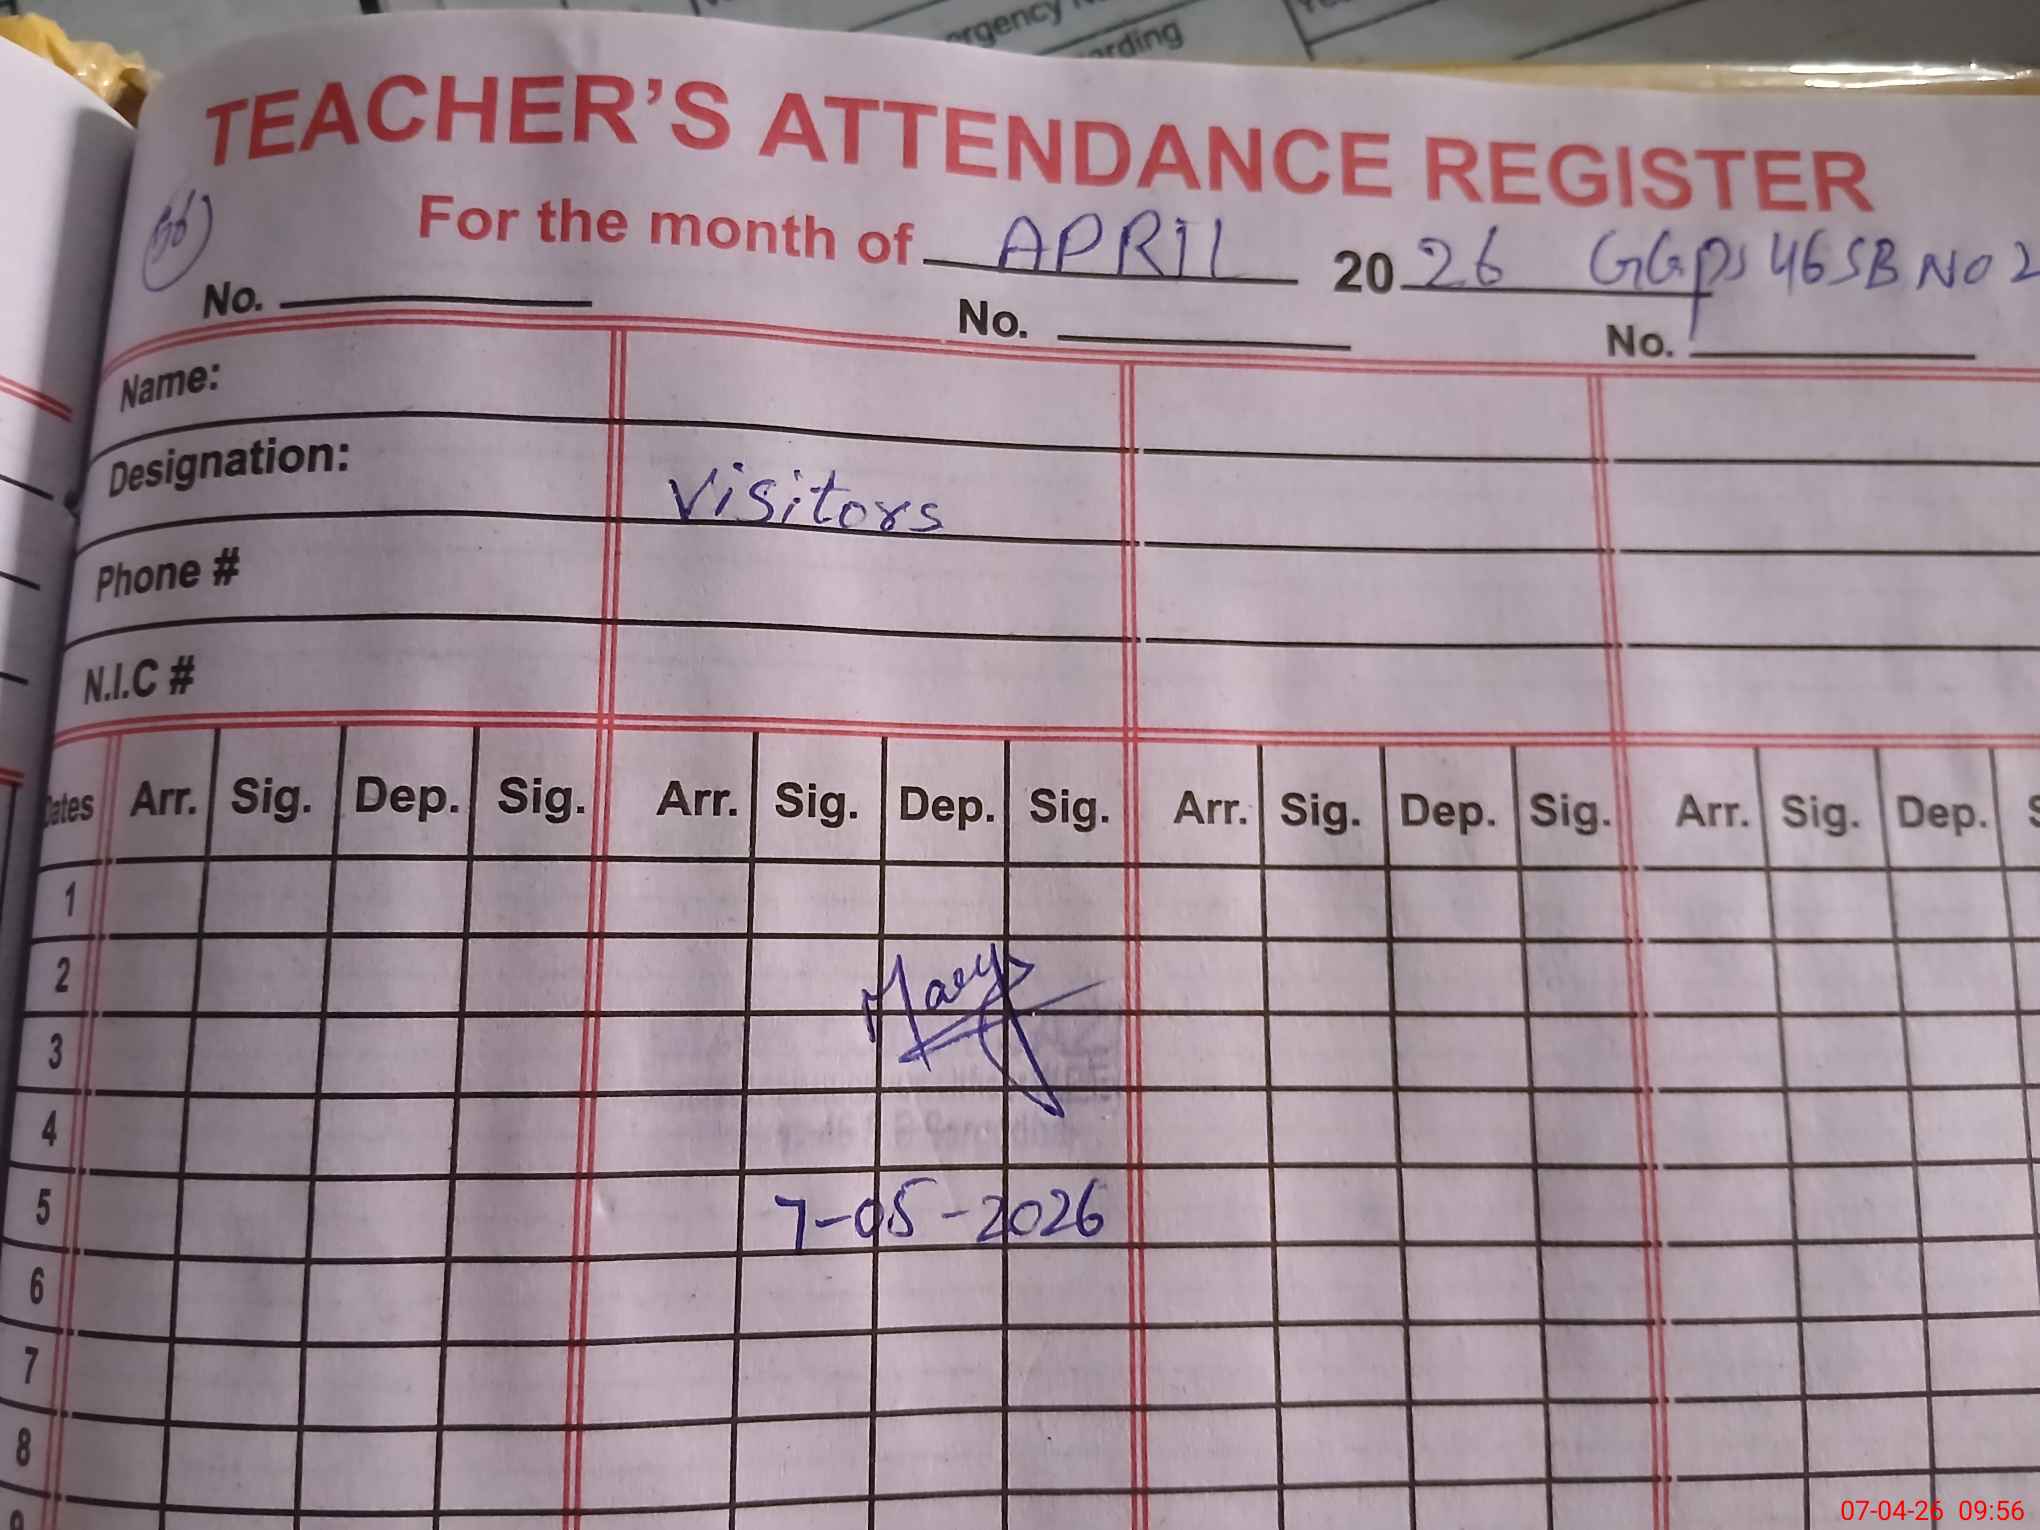 rgency
arding
TEACHER'S ATTENDANCE REGISTER
For the month of APRIL 2026 GGPS 46SB NO 2
No. No. No.
Name:
Designation: Visitors
Phone #
N.I.C #
Dates Arr. Sig. Dep. Sig. Arr. Sig. Dep. Sig. Arr. Sig. Dep. Sig. Arr. Sig. Dep. S
1
2
3
4
5 7-05-2026
6
7
8
9
07-04-26 09:56